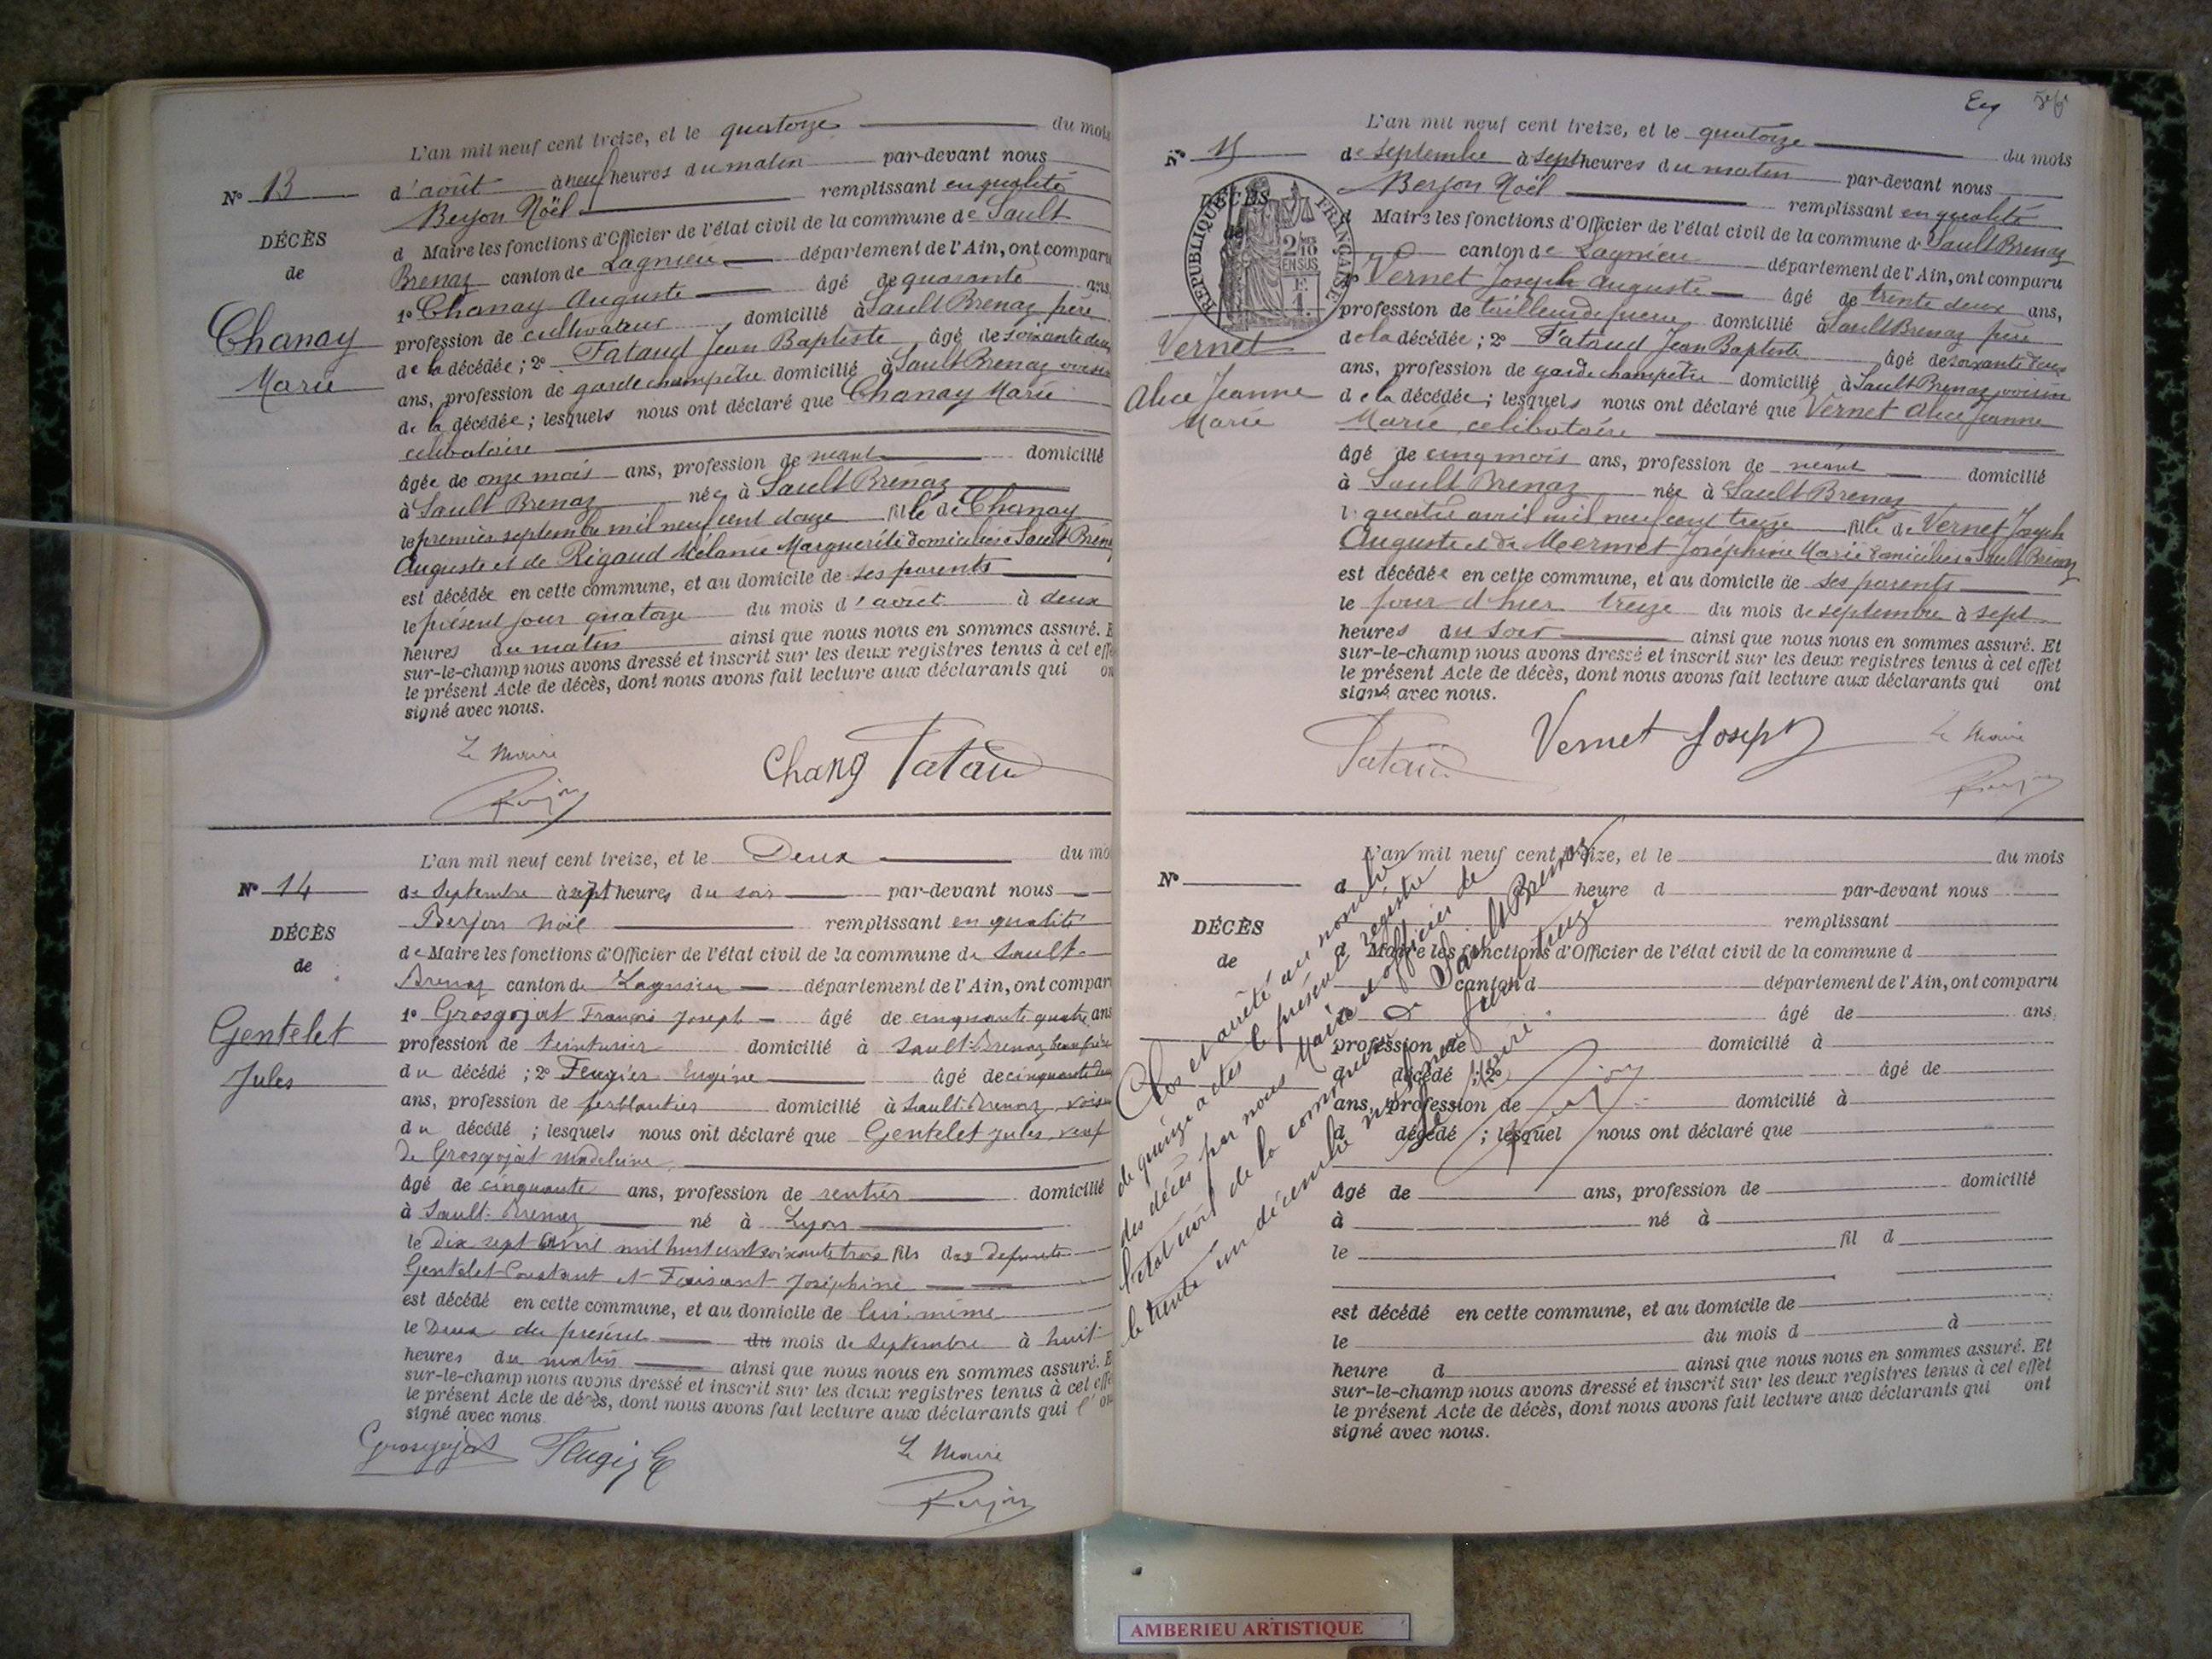 L'an mil neuf cent treize, et le quatorze du mois
N° 13
d'août à neuf heures du matin par-devant nous
Berjon Noël remplissant en qualité
DÉCÈS
de
Chanay
Marie
d Maire les fonctions d'Officier de l'état civil de la commune de Sault
Brenaz canton de Lagnieu département de l'Ain, ont comparu
1° Chanay Auguste âgé de quarante ans,
profession de cultivateur domicilié à Sault Brenaz père
de la décédée; 2° Fataud Jean Baptiste âgé de soixante deux
ans, profession de garde champêtre domicilié à Sault Brenaz voisin
de la décédée; lesquels nous ont déclaré que Chanay Marie
célibataire
âgée de onze mois ans, profession de néant domicilié
à Sault Brenaz née à Sault Brenaz
le premier septembre mil neuf cent douze fille de Chanay
Auguste et de Rigaud Mélanie Marguerite domiciliés à Sault Bren
est décédée en cette commune, et au domicile de ses parents
le présent jour quatorze du mois d'aout à deux
heures du matin ainsi que nous nous en sommes assuré. E
sur-le-champ nous avons dressé et inscrit sur les deux registres tenus à cet effe
le présent Acte de décès, dont nous avons fait lecture aux déclarants qui on
signé avec nous.
Le Maire
Chang Fataud
Berjon
L'an mil neuf cent treize, et le Deux du mo
N° 14
de Septembre à sept heures du soir par-devant nous
Berjon Noël remplissant en qualité
DÉCÈS
de
Gentelet
Jules
de Maire les fonctions d'Officier de l'état civil de la commune de Sault-
Brenaz canton de Lagnieu département de l'Ain, ont compar
1° Grosgojat François Joseph âgé de cinquante quatre ans
profession de teinturier domicilié à Sault-Brenaz beau frère
du décédé; 2° Feugier Eugène âgé de cinquante deux
ans, profession de ferblantier domicilié à Sault-Brenaz, voisin
du décédé; lesquels nous ont déclaré que Gentelet Jules, veuf
de Grosgojat Madeleine,
âgé de cinquante ans, profession de rentier domicilié
à Sault-Brenaz né à Lyon
le Dix sept avril mil huit cent soixante trois fils des défunts
Gentelet Constant et Faisant Joséphine
est décédé en cette commune, et au domicile de lui-même
le Deux du présent du mois de Septembre à huit
heures du matin ainsi que nous nous en sommes assuré. E
sur-le-champ nous avons dressé et inscrit sur les deux registres tenus à cet effe
le présent Acte de décès, dont nous avons fait lecture aux déclarants qui l'on
signé avec nous.
Grosgojat Feugier E
Le Maire
Berjon
L'an mil neuf cent treize, et le quatorze du mois
N° 15
de septembre à sept heures du matin par-devant nous
Berjon Noël remplissant en qualité
DÉCÈS
de
REPUBLIQUE FRANCAISE
2/10
EN SUS
F.
1.
Vernet
Alice Jeanne
Marie
d Maire les fonctions d'Officier de l'état civil de la commune d Sault Brenaz
canton de Lagnieu département de l'Ain, ont comparu
1° Vernet Joseph Auguste âgé de trente deux ans,
profession de tailleur de pierre domicilié à Sault Brenaz père
de la décédée; 2° Fataud Jean Baptiste âgé de soixante deux
ans, profession de garde champêtre domicilié à Sault Brenaz voisin
de la décédée; lesquels nous ont déclaré que Vernet Alice Jeanne
Marie célibataire
âgé de cinq mois ans, profession de néant domicilié
à Sault Brenaz née à Sault Brenaz
le quatre avril mil neuf cent treize fille de Vernet Joseph
Auguste et de Mermet Joséphine Marie domiciliés à Sault Brenaz
est décédée en cette commune, et au domicile de ses parents
le jour d'hier treize du mois de septembre à sept
heures du soir ainsi que nous nous en sommes assuré. Et
sur-le-champ nous avons dressé et inscrit sur les deux registres tenus à cet effet
le présent Acte de décès, dont nous avons fait lecture aux déclarants qui ont
signé avec nous.
Fataud Vernet Joseph
Le Maire
Berjon
L'an mil neuf cent treize, et le du mois
N°
d heure d par-devant nous
remplissant
DÉCÈS
de
d Maire les fonctions d'Officier de l'état civil de la commune d
canton d département de l'Ain, ont comparu
âgé de ans.
profession de domicilié à
d décédé; 2° âgé de
ans, profession de domicilié à
d décédé; lesquel nous ont déclaré que
âgé de ans, profession de domicilié
à né à
le fil d
est décédé en cette commune, et au domicile de
le du mois d à
heure d ainsi que nous nous en sommes assuré. Et
sur-le-champ nous avons dressé et inscrit sur les deux registres tenus à cet effet
le présent Acte de décès, dont nous avons fait lecture aux déclarants qui ont
signé avec nous.
Clos et arrêté au nombre
de quinze actes le présent registre
des décès par nous Maire et officier de
l'état civil de la commune de Sault Brenaz
le trente un décembre mil neuf cent treize
Le Maire.
Berjon
AMBERIEU ARTISTIQUE